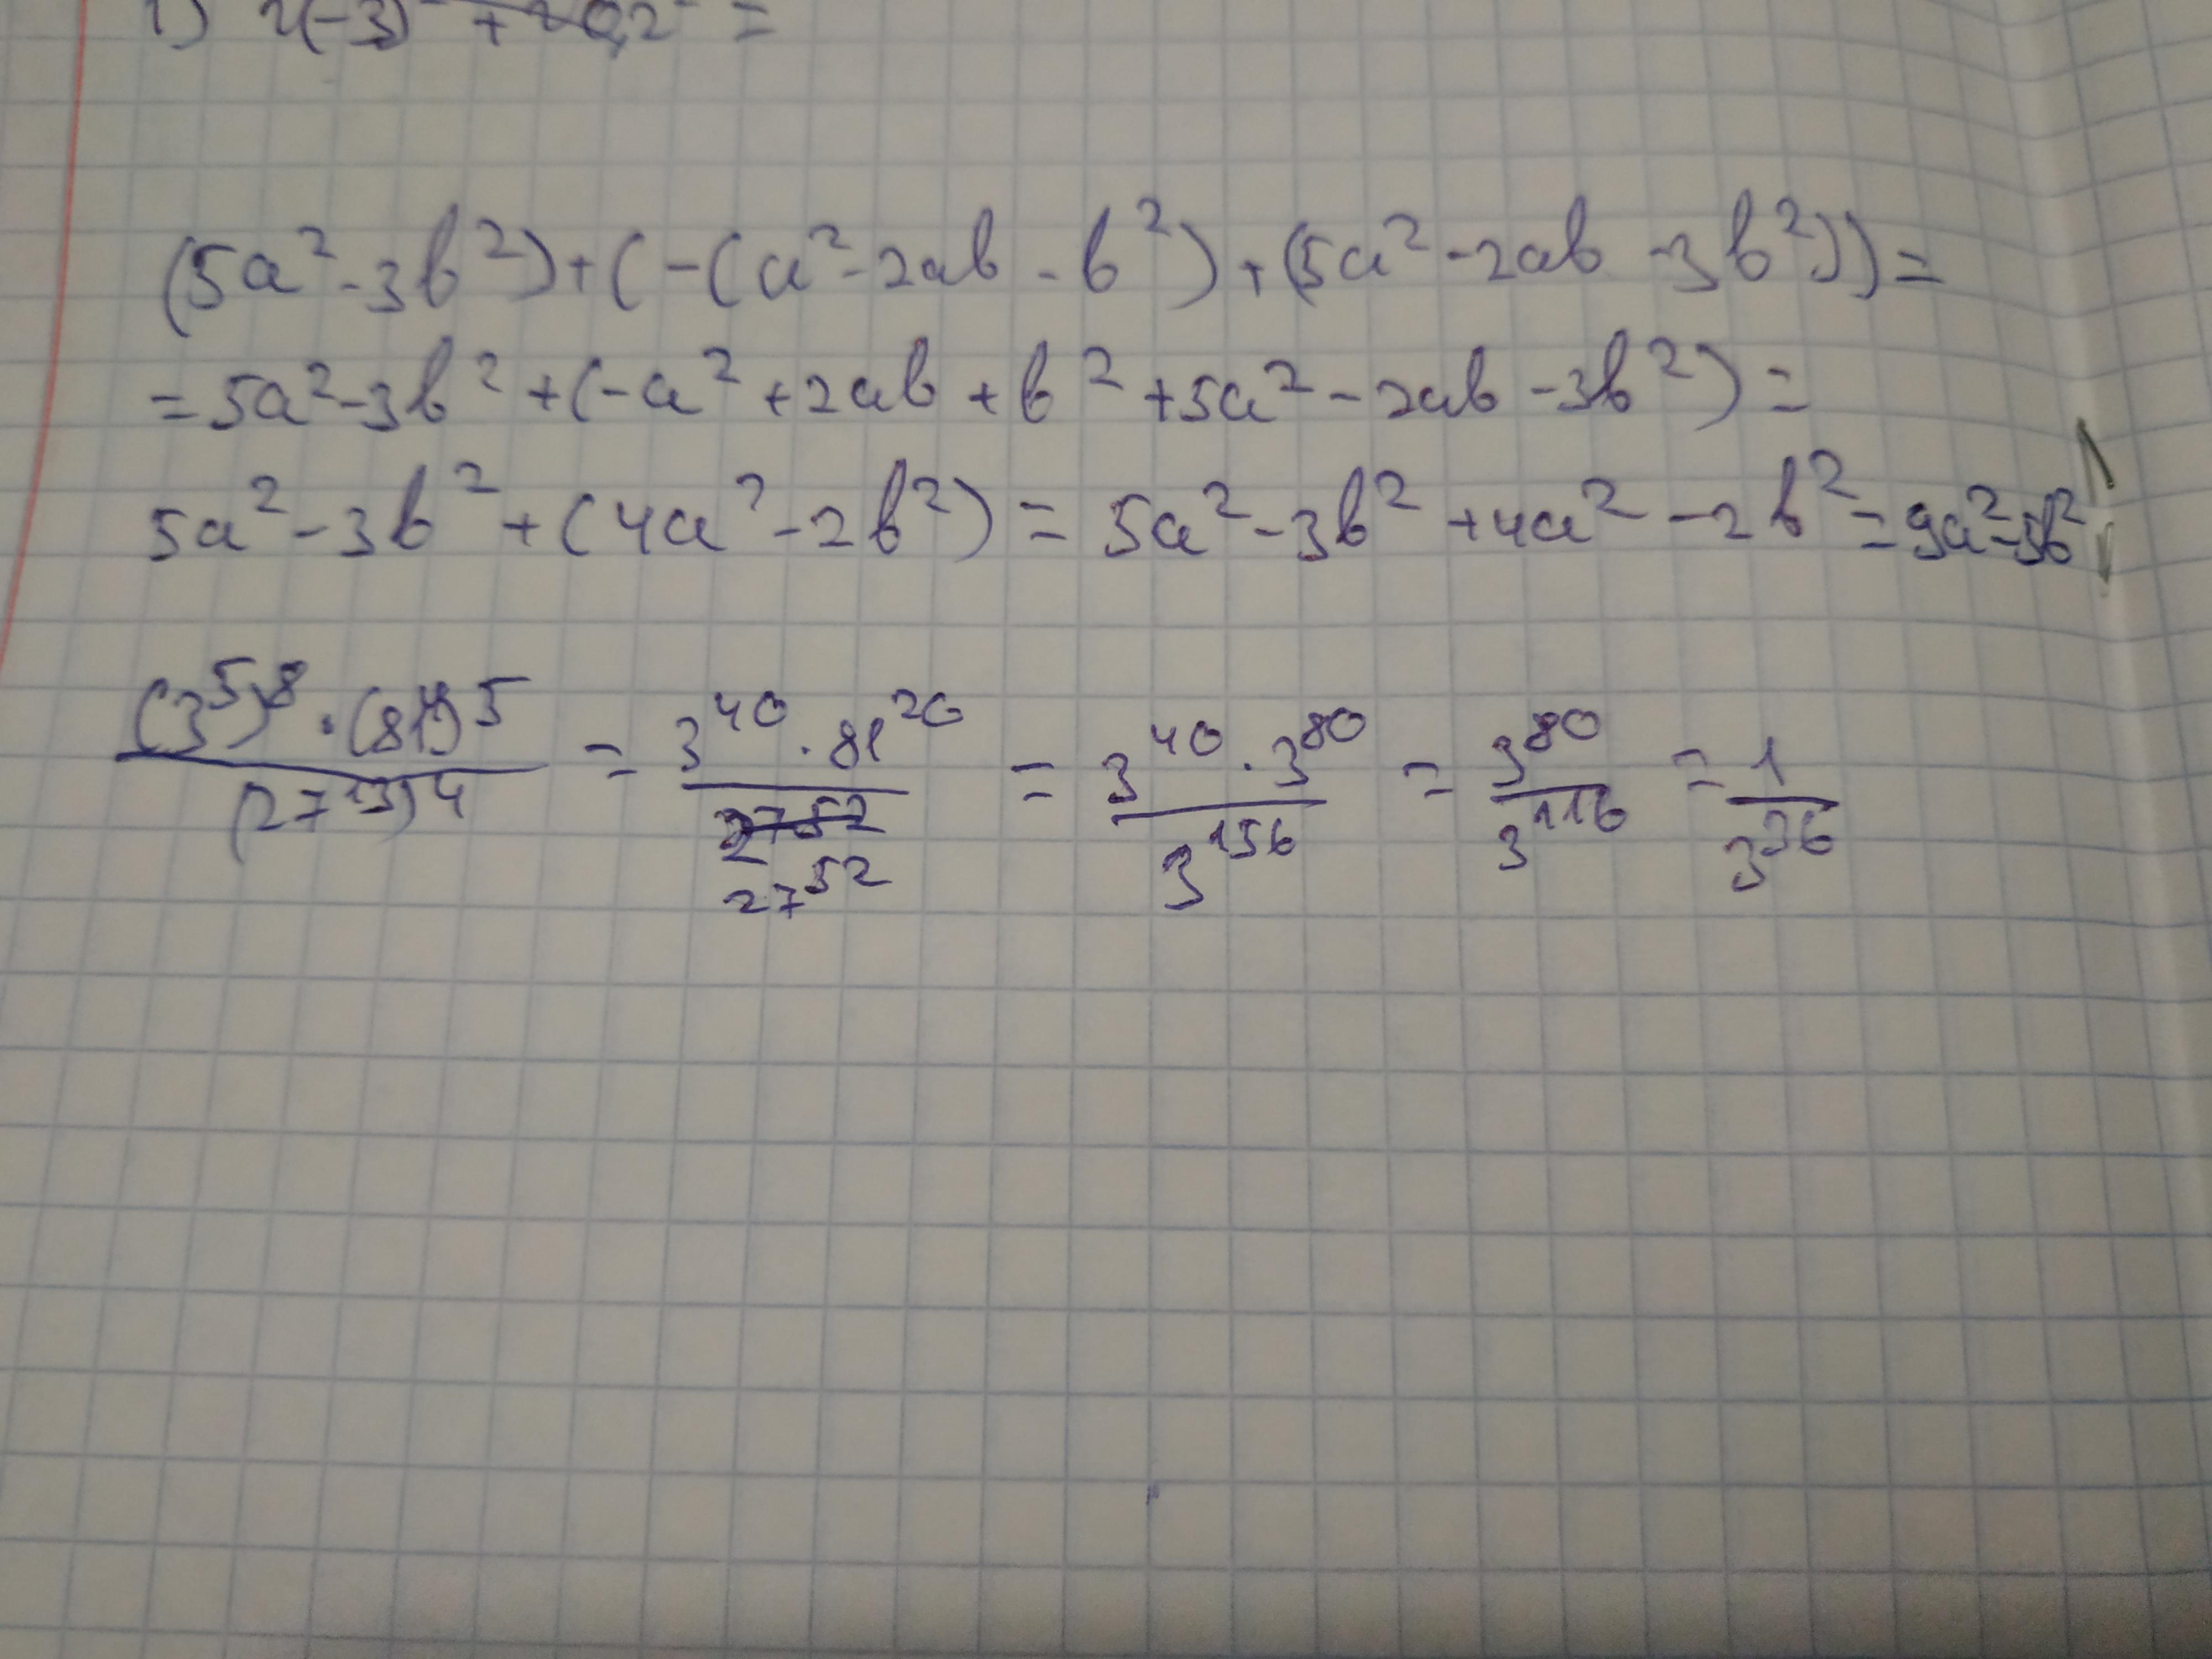 1) 2(-3) + 2 =
(5a²-3b²)+(-(a²-2ab-b²)+(5a²-2ab-3b²))=
=5a²-3b²+(-a²+2ab+b²+5a²-2ab-3b²)=
5a²-3b²+(4a²-2b²)=5a²-3b²+4a²-2b²=9a²-5b²
(3⁵)⁸·(81⁴)⁵/(27¹³)⁴ = 3⁴⁰·81²⁰/27⁵² = 3⁴⁰·3⁸⁰/3¹⁵⁶ = 3⁸⁰/3¹¹⁶ = 1/3³⁶